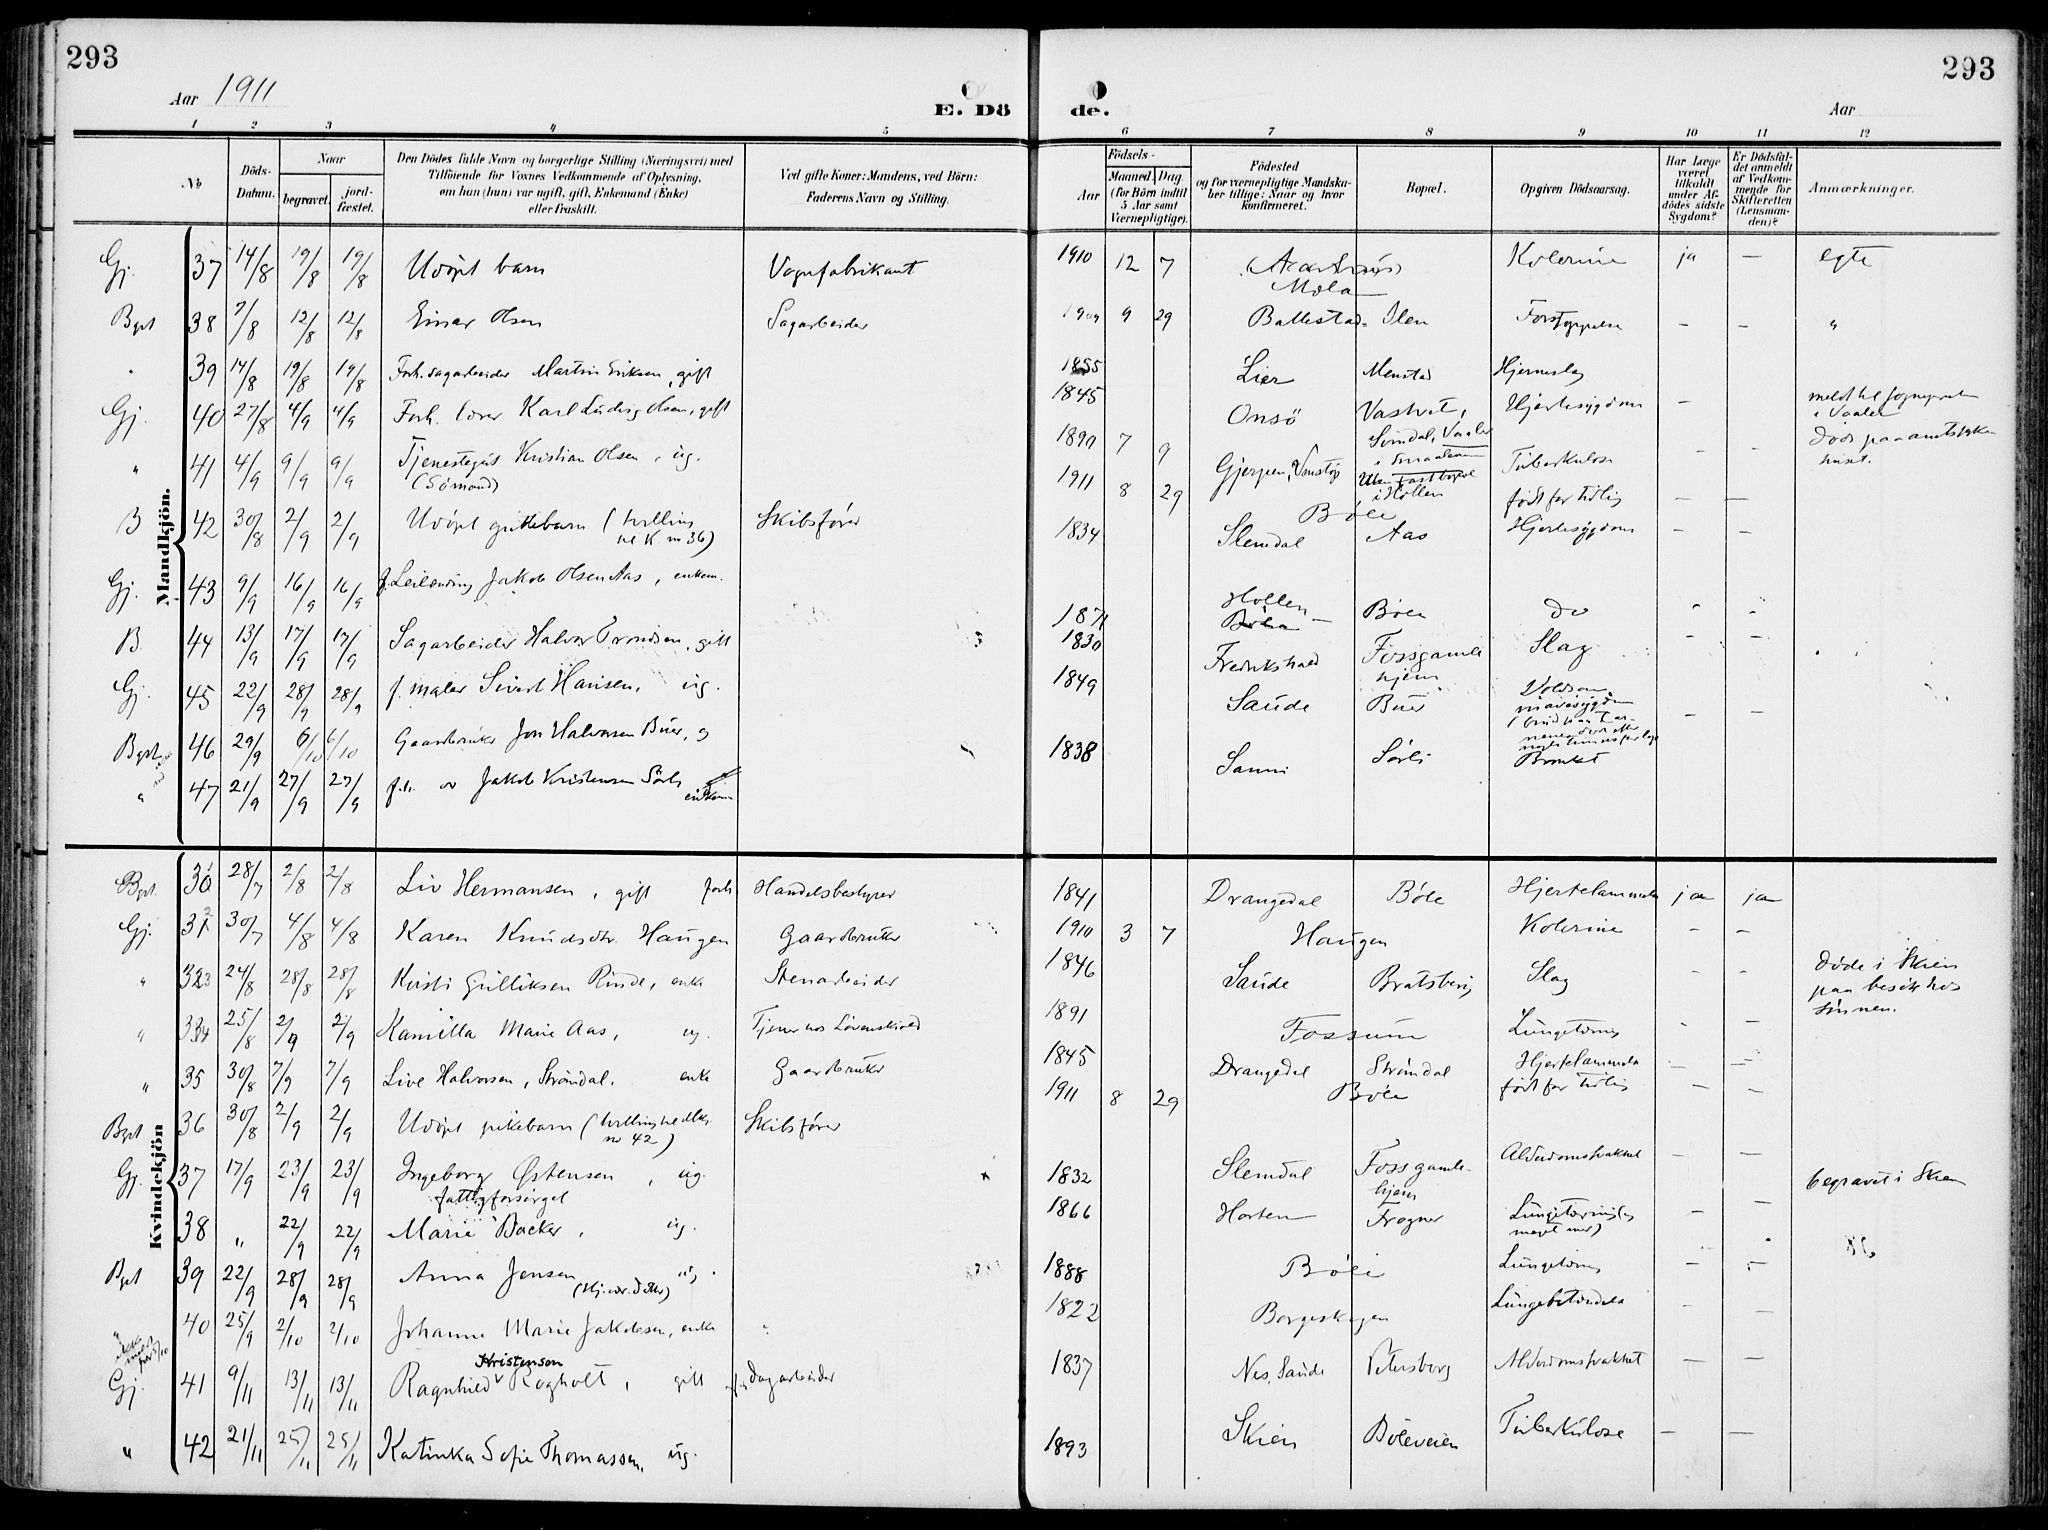 293
293
Aar 1911
E. Dö
de.
Aar
1 2 3 4 5 6 7 8 9 10 11 12
No
Döds-
Datum.
Naar
begravet.
jord-
fæstet.
Den Dödes fulde Navn og borgerlige Stilling (Næringsvei) med
Tilföiende for Voxnes Vedkommende af Oplysning,
om han (hun) var ugift, gift, Enkemand (Enke)
eller fraskilt.
Ved gifte Koner: Mandens, ved Börn:
Faderens Navn og Stilling.
Födsels-
Aar
Maaned. Dag.
(for Börn indtil
5 Aar samt
Værnepligtige).
Födested
og for værnepligtige Mandska-
ber tillige: Naar og hvor
konfirmeret.
Bopæl.
Opgiven Dödsaarsag.
Har Læge
været
tilkaldt
under Af-
dödes sidste
Sygdom?
Er Dödsfal-
det anmeldt
af Vedkom-
mende for
Skifteretten
(Lensman-
den)?
Anmærkninger.
Mandkjön.
Gj. 37 14/8 19/8 19/8 Udöpt barn Vognfabrikant 1910 12 7 Mæla Kolerine ja — egte
Bgst 38 7/8 12/8 12/8 Einar Olsen Sagarbeider 9 29 Ballestad Forstoppelse — — "
39 14/8 19/8 19/8 Forh. sagarbeider Martin Eriksen, gift 1855 Lier Menstad Hjerneslag
Gj. 40 27/8 4/9 4/9 Forh. lærer Karl Ludvig Olsen, gift 1845 Onsö Hjertesygdom —
Svindal, Vaaler
i Smaalenene
i Vaaler
" 41 4/9 9/9 9/9 Tjenestegut Kristian Olsen, ug. 1890 7 9 Gjerpen Tuberkulose — — Död paa amtssyke-
huset.
(Sömand) i Hollen
B 42 30/8 2/9 2/9 Udöpt guttebarn (tvilling Skibsförer 1911 8 29 Böle födt for tidlig — —
til K. nr 36)
Gj. 43 9/9 16/9 16/9 f. Leilending Jakob Olsen Aas, enkem. 1834 Slemdal Aas Hjertesygdom —
B. 44 13/9 17/9 17/9 Sagarbeider Halvor Trondsen, gift 1871 Hollen Böle do
Gj. 45 22/9 28/9 28/9 f. maler Sivert Hansen, ug. 1830 Fredrikshald Fossgamle Slag — —
hjem
Bgst 46 29/9 6/10 6/10 Gaardbruker Jon Halvorsen Buer, g 1849 Saude Buer — —
" 47 21/9 27/9 27/9 Jakob Kristensen Sörli enkem 1838 Sanni Sörli
Kvindekjön
Bgst. 30 28/7 2/8 2/8 Liv Hermansen, gift forh. Handelsbestyrer 1841 Drangedal Böle Hjertelammelse ja ja
Gj. 31 30/7 4/8 4/8 Karen Knudsdtr. Haugen Gaardbruker 1910 3 7 Haugen Kolerine — —
" 33 24/8 28/8 28/8 Kirsti Gulliksen Rinde, enke Stenarbeider 1846 Saude Bratsberg Slag — — döde i Skien
paa besök hos
sönnen.
" 34 25/8 2/9 2/9 Kamilla Marie Aas, ug. Tjener hos Lövenskiold 1891 Fossum Lungetæring — —
" 35 30/8 7/9 7/9 Live Halvorsen, Strömdal, enke Gaardbruker 1845 Drangedal Strömdal Hjertelammelse — —
Bgst 36 30/8 2/9 2/9 Udöpt pikebarn (tvilling til Mk Skibsförer 1911 8 29 Böle födt for tidlig — —
nr 42)
Gj. 37 17/9 23/9 23/9 Ingeborg Östensen, ug. 1832 Slemdal Fossgamle- Alderdomssvakhet — —
fattigforsörget hjem
38 " 22/9 22/9 Marie Backer, ug. 1866 Horten Frogner Lungetæring — — begravet i Skien
Bgst 39 22/9 28/9 28/9 Anna Jensen ug. 1888 Böle Lungetæring — —
40 25/9 2/10 2/10 Johanne Marie Jakobsen, enke " 1822 Borgeskogen Lungebetændelse — —
Kristensen
Gj. 41 9/11 13/11 13/11 Ragnhild Rogholt, gift Dagarbeider 1837 Nes, Saude Petersborg Alderdomssvakhet — —
" 42 21/11 25/11 25/11 Katinka Sofie Thomassen, ug. 1893 Skien Böleveien Tuberkulose — —